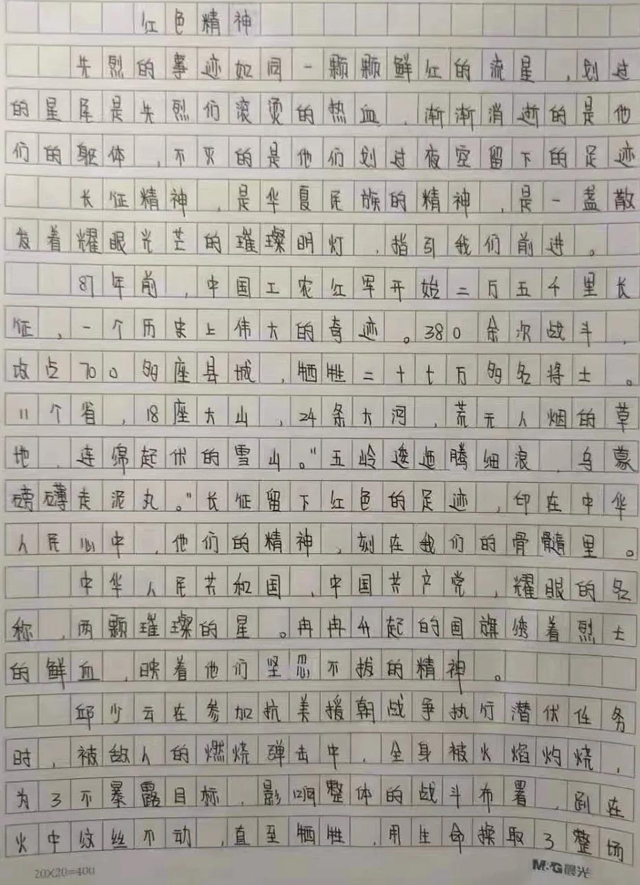 红色精神
先烈的事迹如同一颗颗鲜红的流星,划过
的星库是先烈们滚烫的热血,渐渐消逝的是他
们的躯体,不灭的是他们划过夜空留下的足迹
长征精神,是华夏民族的精神,是一盏散
发着耀眼光芒的璀璨明灯,指引我们前进。
87年前,中国工农红军开始二万五千里长
征,一个历史上伟大的奇迹。380余次战斗,
攻占700多座县城,牺牲二十七万多名将士。
11个省,18座大山,24条大河,荒无人烟的草
地,连绵起伏的雪山。"五岭逶迤腾细浪,乌蒙
磅礴走泥丸。"长征留下红色的足迹,印在中华
人民心中,他们的精神,刻在我们的骨髓里。
中华人民共和国,中国共产党,耀眼的名
称,两颗璀璨的星。冉冉升起的国旗绣着烈士
的鲜血,映着他们坚忍不拔的精神。
邱少云在参加抗美援朝战争执行潜伏任务
时,被敌人的燃烧弹击中,全身被火焰灼烧,
为了不暴露目标,影响整体的战斗布署,趴在
火中纹丝不动,直至牺牲,用生命换取了整场
20X20=400
M&G晨光